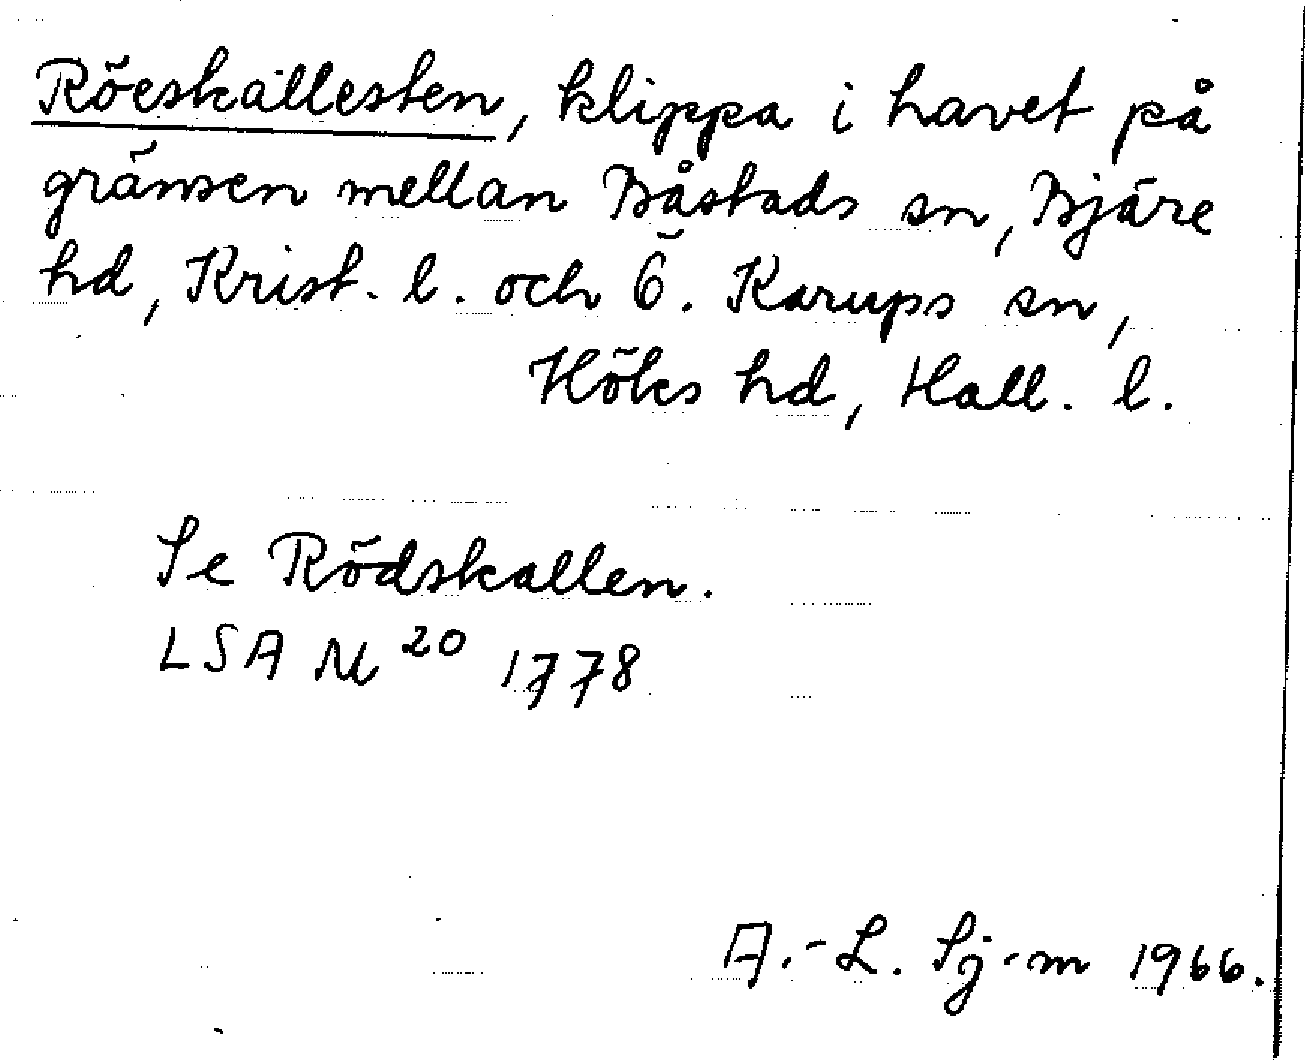 Röeskallesten, klippa i havet på
gränsen mellan Båstads sn, Bjäre
hd, Krist. l. och Ö. Karups sn,
Höks hd, Hall. l.
Se Rödskallen.
LSA M 20 1778
A.-L. Sj-m 1966.